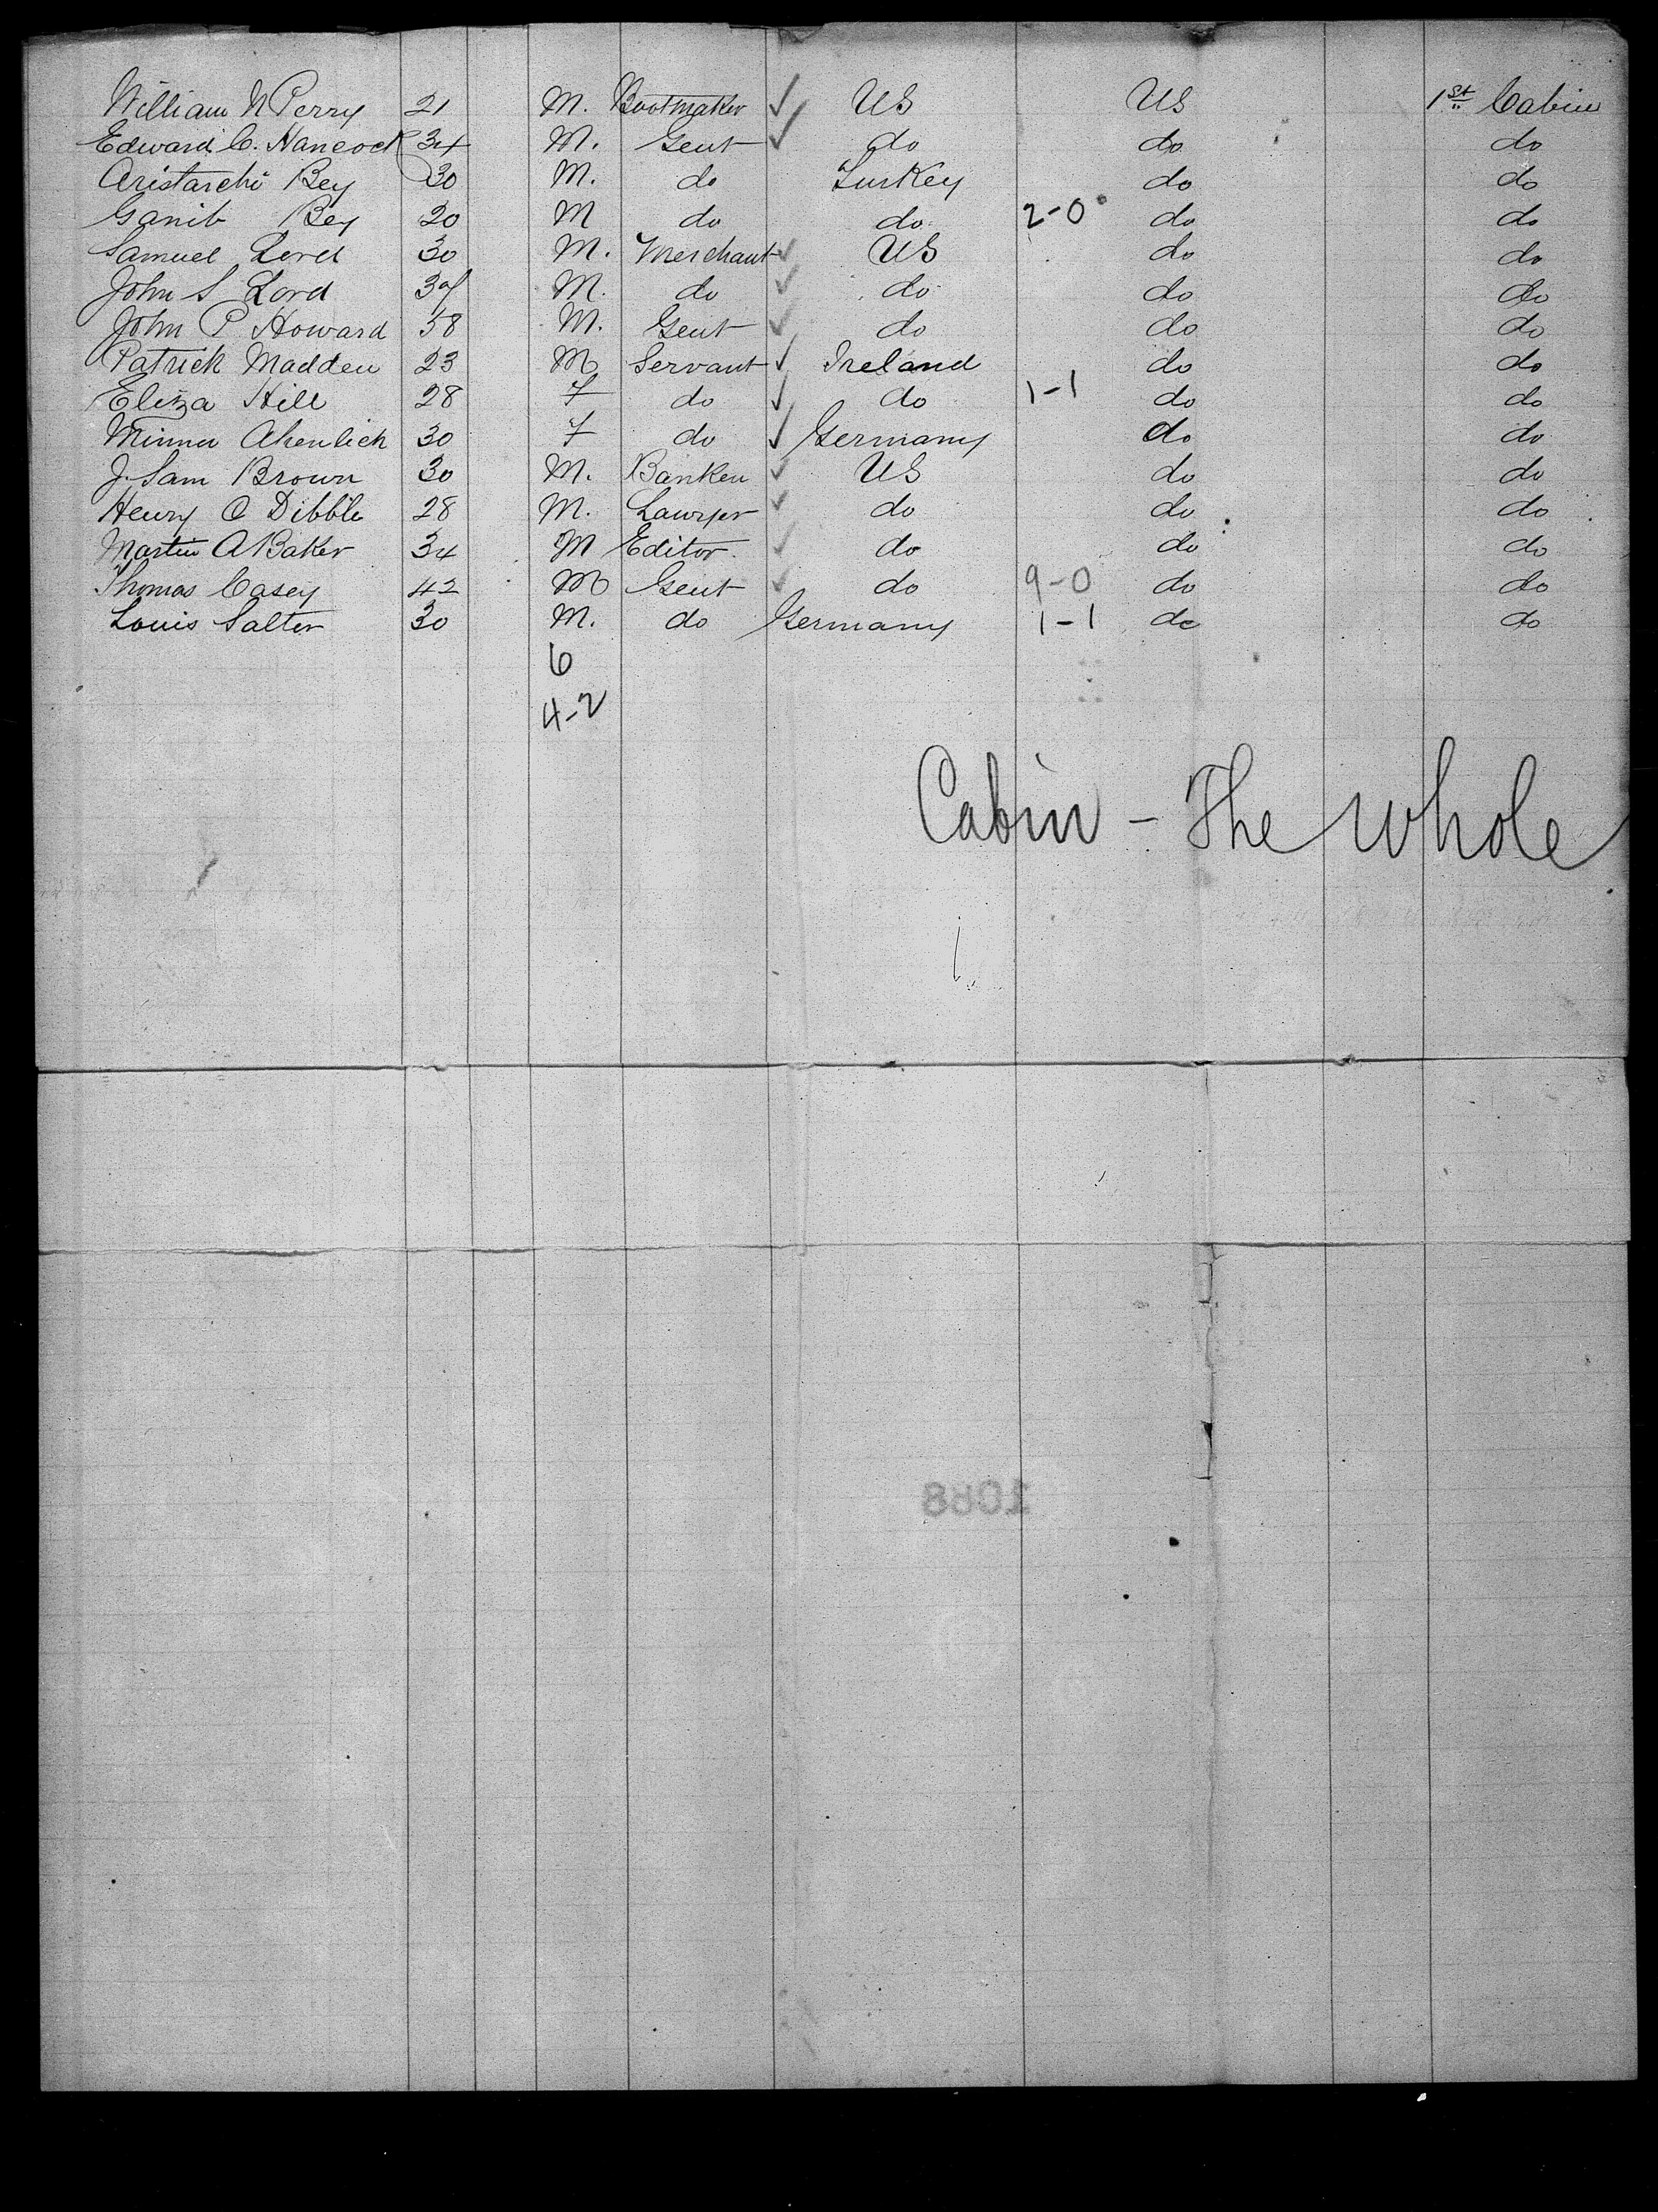 William N Perry 21 M. Bootmaker ✓ US US 1st Cabin
Edward C. Hancock 34 M. Gent ✓ do do do
Aristarchi Bey 30 M. do Turkey do do
Ganib Bey 20 M do do 2-0 do do
Samuel Lord 30 M. Merchant ✓ US do do
John S Lord M. do ✓ do do do
John P Howard 58 M. Gent ✓ do do do
Patrick Madden 23 M Servant ✓ Ireland do do
Eliza Hill 28 F do ✓ do 1-1 do do
Minna 30 F do ✓ Germany do do
J. Sam Brown 30 M. Banker ✓ US do do
Henry C Dibble 28 M. Lawyer ✓ do do do
Martin A Baker 34 M Editor. ✓ do do do
Thomas Casey 42 M Gent ✓ do 9-0 do do
Louis Salter 30 M. do Germany 1-1 do do
6
4-2
Cabin - The whole
1088